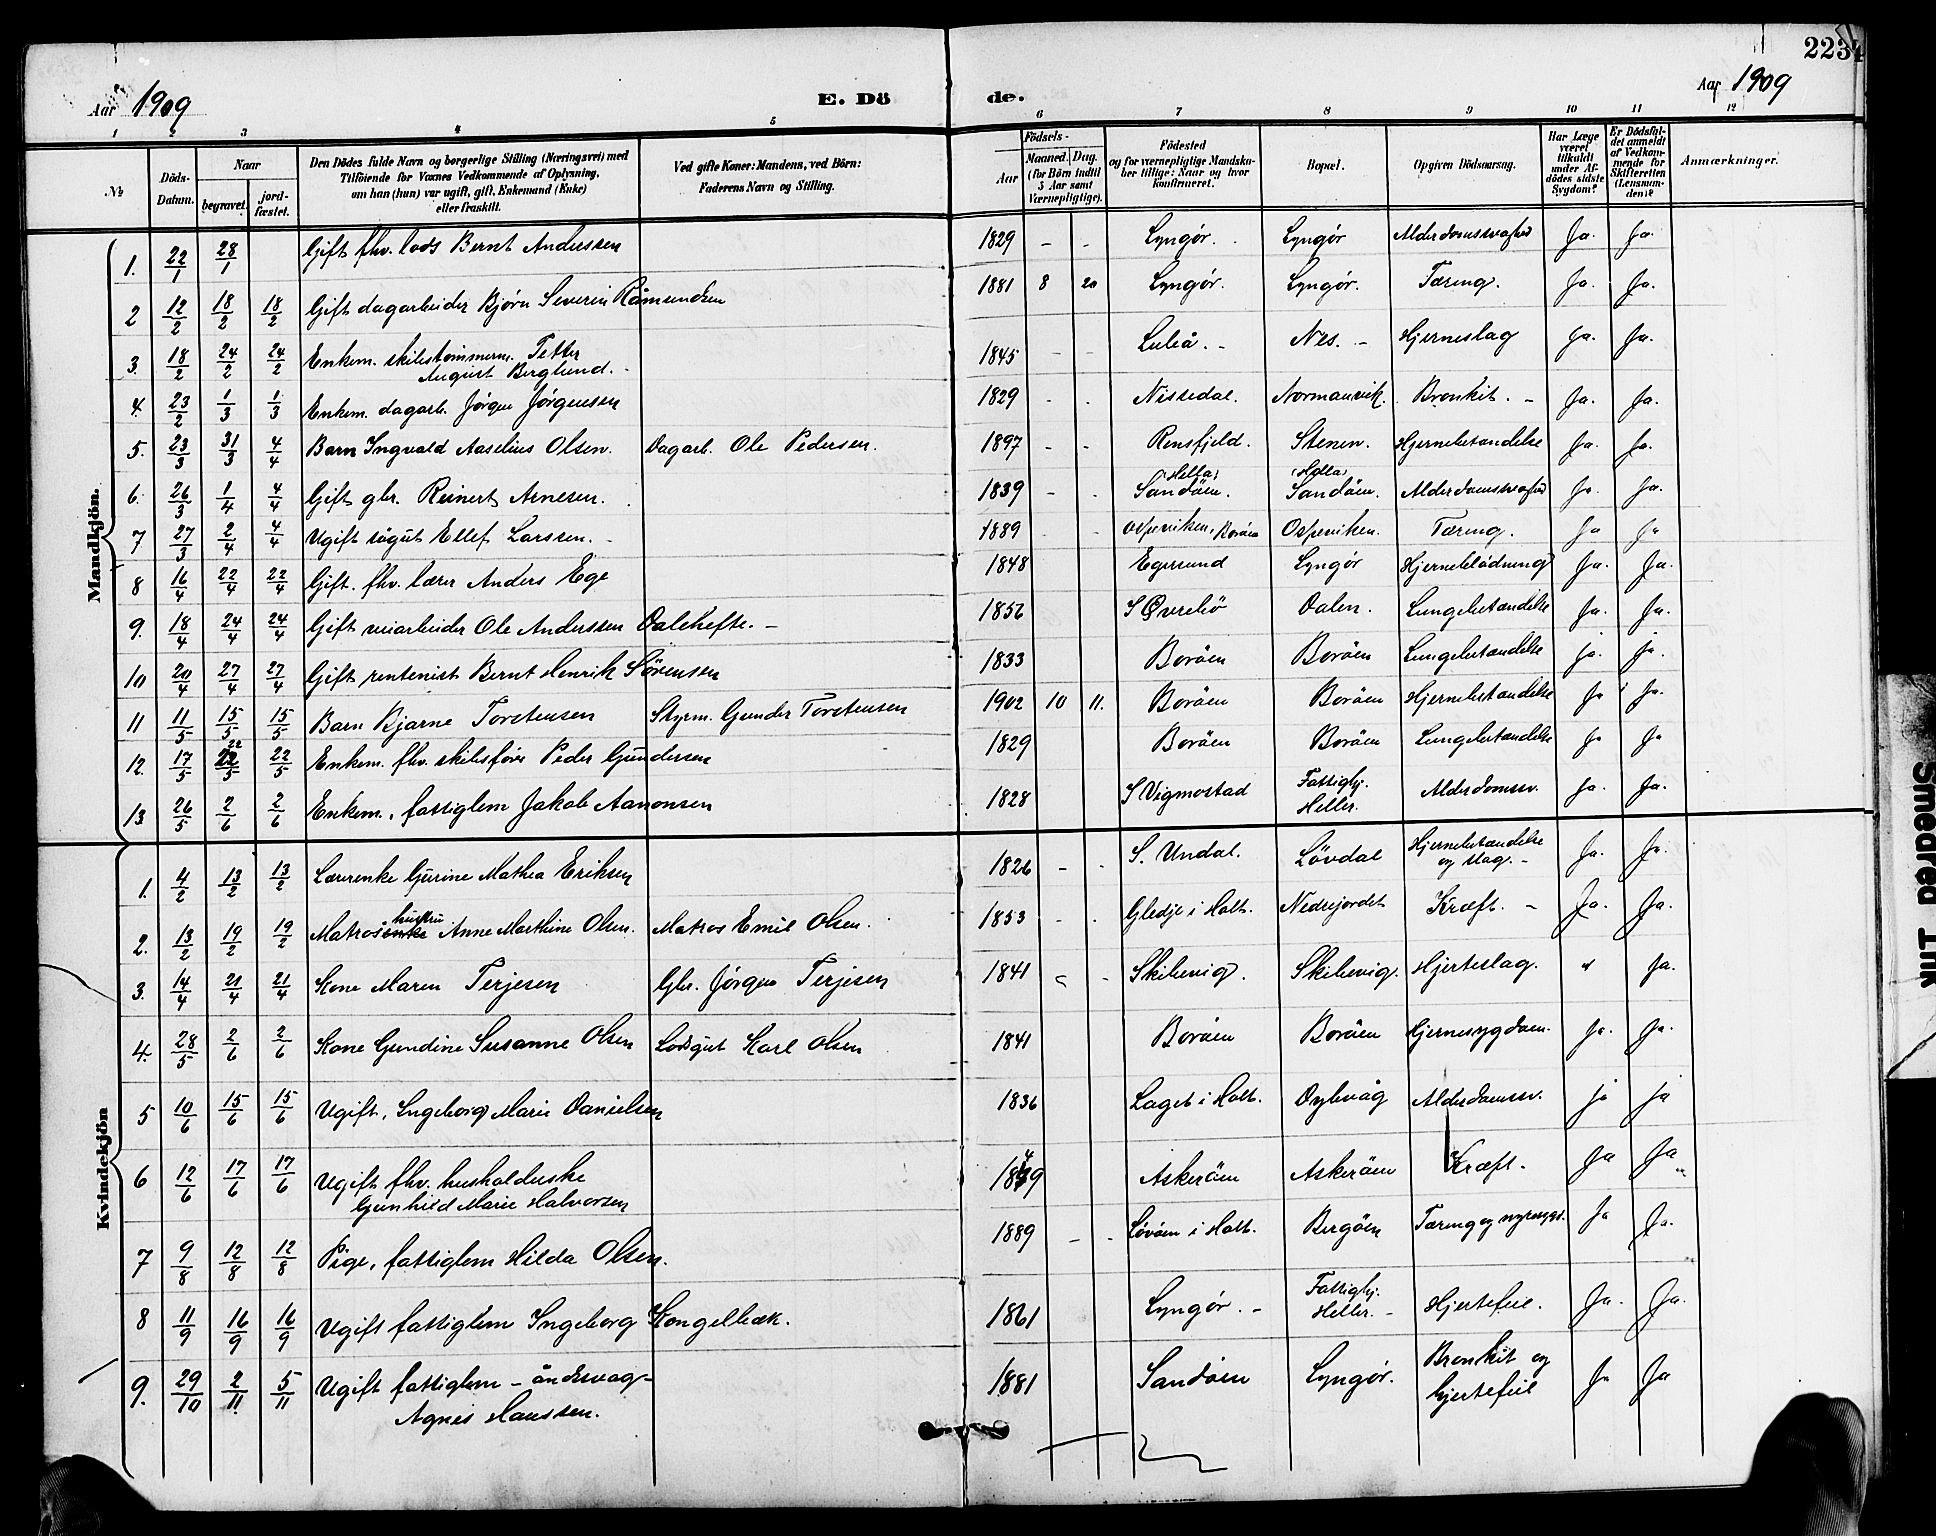 2234
Aar 1909 E. Dö de. Aar 1909
1 2 3 4 5 6 7 8 9 10 11 12
No
Döds-Datum.
Naar
begravet.
jord-fæstet.
Den Dödes fulde Navn og borgerlige Stilling (Næringsvei) med
Tilföiende for Voxnes Vedkommende af Oplysning,
om han (hun) var ugift, gift, Enkemand (Enke)
eller fraskilt.
Ved gifte Koner: Mandens, ved Börn:
Faderens Navn og Stilling.
Födsels-
Aar
Maaned. Dag.
(for Börn indtil
5 Aar samt
Værnepligtige).
Födested
og for værnepligtige Mandska-
ber tillige: Naar og hvor
konfirmeret.
Bopæl.
Opgiven Dödsaarsag.
Har Læge
været
tilkaldt
under Af-
dödes sidste
Sygdom?
Er Dödsfal-
det anmeldt
af Vedkom-
mende for
Skifteretten
(Lensman-
den)?
Anmærkninger.
Mandkjön.
1. 22/1 28/1 Gift fhv. lods Bernt Anderssen 1829 - - Lyngør. Lyngør Alderdomssvaghed Ja. Ja.
2 12/2 18/2 18/2 Gift dagarbeider Bjørn Severin Råmundsen 1881 8 20 Lyngør. Lyngør. Tæring. Ja. Ja.
3. 18/2 24/2 24/2 Enkem. skibstømmerm. Petter
August Berglund. 1845 - - Luleå. - Nes. - Hjerneslag Ja. Ja.
4. 23/2 1/3 1/3 Enkem. dagarb. Jørgen Jørgensen 1829 - - Nissedal. Normanvik. Bronkit. - Ja. Ja.
5. 23/3 31/3 4/4 Barn Ingvald Aaselius Olsen. Dagarb. Ole Pedersen. 1897 - - Rensfjeld. Stenen. Hjernebetændelse Ja. Ja.
6. 26/3 1/4 4/4 Gift gbr. Reinert Arnesen. 1839 - - Sandöen. (Holla) Sandöen. (Holla) Alderdomssvaghed Ja. Ja.
7. 27/3 2/4 4/4 Ugift sigut Ellef Larssen. - 1889 - - Ospeviken, Boröen Ospeviken. Tæring. Ja Ja
8 16/4 22/4 22/4 Gift. fhv. lærer Anders Ege 1848 Egersund Lyngør Hjerneblödning Ja. Ja.
9. 18/4 24/4 24/4 Gift veiarbeider Ole Anderssen Dalehefte. - 1856 S Øvrebö Dalen. Lungebetændelse Ja. Ja.
10 20/4 27/4 27/4 Gift rentenist Bernt Henrik Sörensen 1833 Boröen Boröen Lungebetændelse ja. ja.
11 11/5 15/5 15/5 Barn Bjarne Torstensen Styrm. Gunder Torstensen 1902 10 11. Boröen Boröen Hjernebetændelse Ja Ja.
12. 17/5 22/5 22/5 Enkem. fhv. skibsfører Peder Gundersen 1829 Boröen Boröen Lungebetændelse Ja Ja
13 26/5 2/6 2/6 Enkem., fattiglem Jakob Aanonsen 1828 S Vigmostad Fattighj.
Heller. Alderdomssv. Ja. Ja.
Kvindekjön
1. 4/2 13/2 13/2 Lærerenke Gurine Mathea Eriksen 1826 - - S. Undal. Lövdal Hjernebetændelse
og slag. - Ja. Ja.
2. 13/2 19/2 19/2 Matrosenke hustru Anne Marthine Olsen. Matros Emil Olsen. 1853 - - Gledje i Holt. Nedrejordet Kræft. - Ja. Ja.
3. 14/4 21/4 21/4 Kone Maren Terjesen Gbr. Jørgen Terjesen 1841 - - Skibevig. Skibevig. Hjerteslag. " Ja.
4. 28/5 2/6 2/6 Kone Gundine Susanne Olsen Lodsgut Karl Olsen 1841 Boröen Boröen Hjernesygdom. Ja. Ja.
5 10/6 15/6 15/6 Ugift, Ingeborg Marie Danielsen 1836 Laget i Holt. Dybvåg Alderdomssv. ja ja
6 12/6 17/6 17/6 Ugift fhv. husholderske
Gunhild Marie Halvorsen 1849 Askeröen Askeröen Kræft. Ja Ja
7 9/8 12/8 12/8 Pige, fattiglem Hilda Olsen. 1889 - - Lövöen i Holt. Bergöen Tæring og nyresygd. Ja Ja.
8 11/9 16/9 16/9 Ugift fattiglem Ingeborg Kongelbæk. 1861 Lyngør. - Fattighj.
Heller. - Hjertefeil. Ja. Ja.
9. 29/10 2/11 5/11 Ugift fattiglem - åndssvag -
Agnes Hanssen. 1881 Sandöen Lyngør. Bronkit og
hjertefeil Ja Ja
Smeared Ink